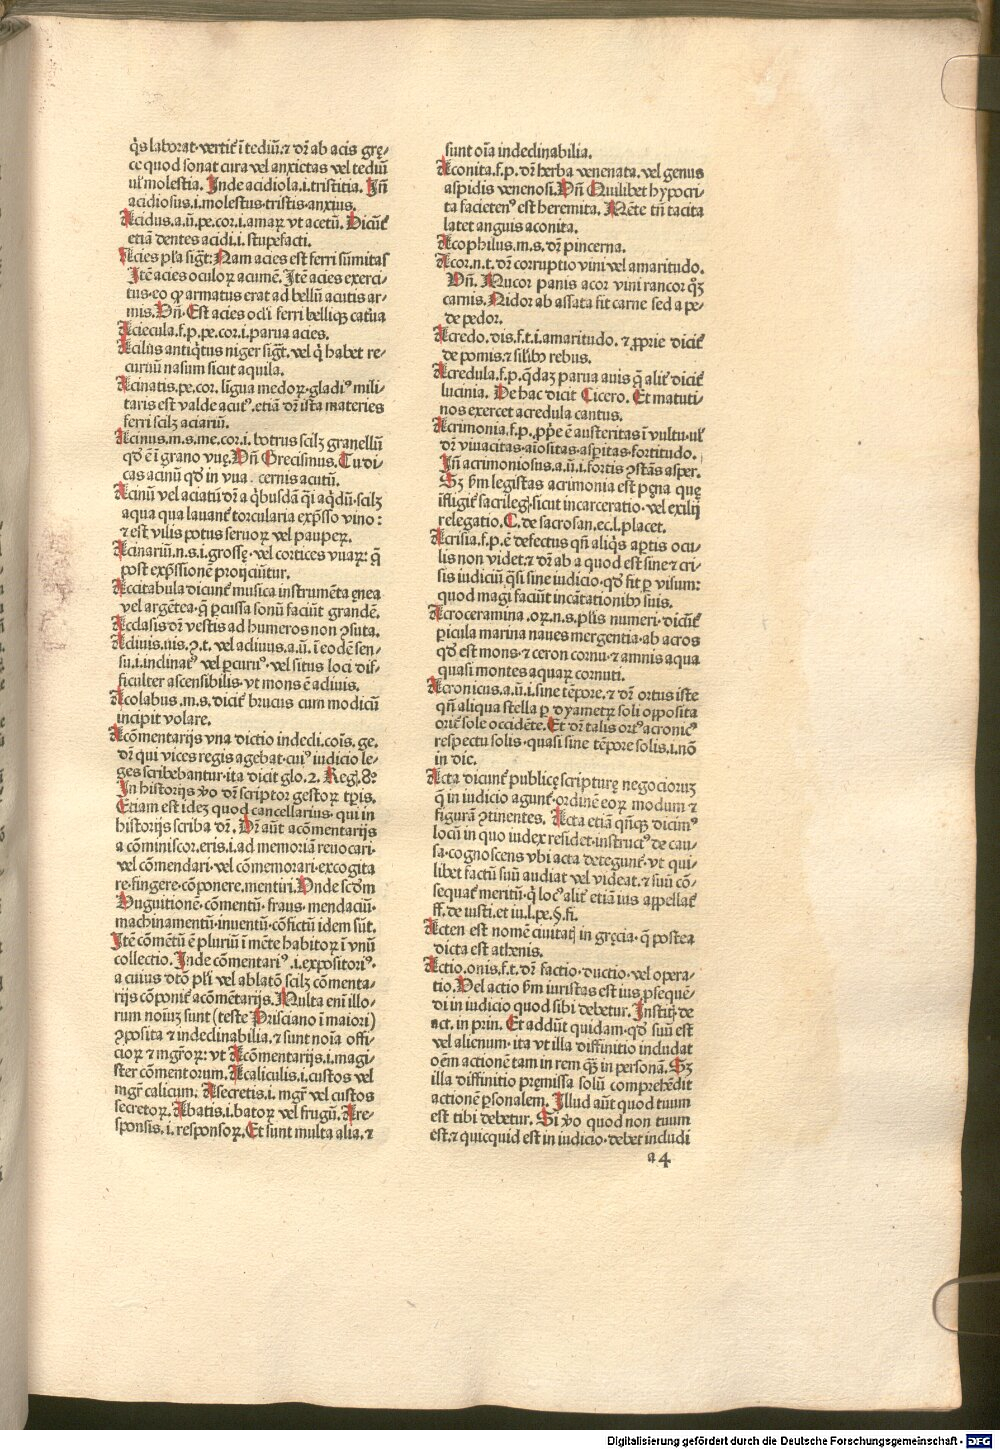 q̇s laborat·vertit᷒ ī tediū.⁊ dr̄ ab acis gre̜-
ce quod sonat cura vel anxietas vel tediū
ul̓ molestia. Inde acidiola.i.tristitia. Jn̄
acidiosus.i.molestus·tristis·anxius.
Acidus.a.ū.pe.cor.i.amaꝝ vt acetū. Dicūt᷒
etiā dentes acidi.i.stupefacti.
Acies pl̓a sigt̓: Nam acies est ferri sūmitas
Jtē acies oculoꝝ acumē. Jtē acies exerci-
tus·eo ꝙ armatus erat ad bellū acutis ar-
mis. Vn̄· Est acies ocl̓i ferri belliqꝫ cat̓ua
Aciecula.f.p.pe.cor.i.parua acies.
Acilus antiq̇tus niger sigt̓.vel q̇ habet re-
curuū nasum sicut aquila.
Acinatis.pe.cor. līgua medoꝝ·gladiꝰ mili-
taris est valde acutꝰ.etiā dr̄ ista materies
ferri scilꝫ aciariū.
Acinus.m.s.me.cor.i. botrus scilꝫ granellū
qd̓ ē ī grano vue̜. Vn̄ Grecismus. Tu di-
cas acinū qd̓ in vua . cernis acutū.
Acinū vel aciatū dr̄ a q̇busdā q̄i aq̇dū·scilꝫ
aqua qua lauant᷒ torcularia exp̄sso vino:
⁊ est vilis potus seruoꝝ vel pauperꝝ.
Acinariū.n.s.i.grosse̜·vel cortices vuaꝝ: q̄
post exp̄ssionē proijciūtur.
Accitabula dicunt᷒ musica instrumēta e̜nea
vel argētea·q̄ ꝑcussa sonū faciūt grandē.
Acclasis dr̄ vestis ad humeros non ꝯsuta.
Acliuis.uis.ꝯ.t. vel acliuus.a.ū. i eodē sen-
su.i.inclinatꝰ vel ꝑcuruꝰ·vel situs loci dif-
ficulter ascensibilis·vt mons ē acliuis.
Acolabus.m.s.dicit᷒ brucus cum modicū
incipit volare.
Acōmentarijs vna dictio indecli.cōis. ge.
dr̄ qui vices regis agebat·cuiꝰ iudicio le-
ges scribebantur·ita dicit glo.2. Reg̓.8º
Jn historijs ꝟo dr̄ scriptor gestoꝝ tp̄is.
Etiam est ideꝫ quod cancellarius·qui in
historijs scriba dr̄. Dr̄ aūt acōmentarijs
a cōminiscor.eris.i.ad memoriā reuocari·
vel cōmendari·vel cōmemorari·excogita
re·fingere·cōponere.mentiri. Vnde scd̓m
Huguitionē·cōmentū·fraus·mendaciū·
machinamentū·inuentū·cōfictū idem sūt.
Jtē cōmētū ē pluriū ī mēte habitoꝝ ī vnū
collectio. Jnde cōmentariꝰ.i.expositoriꝰ·
a cuius dtō pl̓i vel ablatō scilꝫ cōmenta-
rijs cōponit᷒ acōmētarijs. Multa enī illo-
rum noīuꝫ sunt (teste Prisciano ī maiori)
ꝯposita ⁊ indeclinabilia.⁊ sunt noīa offi-
cioꝝ ⁊ mgr̄oꝝ: vt Acōmentarijs.i.magi-
ster cōmentorum. Acaliculis.i.custos vel
mgr̄ calicum. Asecretis.i. mgr̄ vel custos
secretoꝝ. Abatis.i.batoꝝ vel frugū. Are-
sponsis. i. responsoꝝ. Et sunt multa alia. ⁊
sunt oīa indeclinabilia.
Aconita.f.p. dr̄ herba venenata. vel genus
aspidis venenosi. Vn̄ Quilibet hypocri-
ta facietenꝰ est heremita. Mēte tn̄ tacita
latet anguis aconita.
Acophilus.m.s. dr̄ pincerna.
Acor.n.t. dr̄ corruptio vini vel amaritudo.
Vn̄. Mucor panis acor vini rancor qꝫ
carnis. Nidor ab assata fit carne sed a pe-
de pedor.
Acredo.dis.f.t.i.amaritudo. ⁊ ꝓprie dicit᷒
de pomis.⁊ silibꝰ rebus.
Acredula.f.p.q̄daꝫ parua auis q̄ alit̓ dicit᷒
lucinia. De hac dicit Cicero. Et matuti-
nos exercet acredula cantus.
Acrimonia.f.p.ꝓp̓e ē austeritas ī vultu·ul̓
dr̄ viuacitas·aīositas·asp̄itas·fortitudo.
Jn̄ acrimoniosus.a.ū.i.fortis ꝯstās asper.
Sꝫ ẜm legistas acrimonia est pe̜na que̜
ifligit᷒ sacrileg̓·sicut incarceratio·vel exilij
relegatio. C. de sacrosan.ec.l.placet.
Acrisia.f.p.ē defectus qn̄ aliq̇s aꝑtis ocu-
lis non videt.⁊ dr̄ ab a quod est sine ⁊ cri-
sis iudiciū q̄si sine iudicio·qd̓ fit ꝑ visum:
quod magi faciūt incātationibꝰ suis.
Acroceramina.oꝝ.n.s.pl̓is numeri·dicūt᷒
ꝑicula marina naues mergentia·ab acros
qd̓ est mons·⁊ ceron cornu·⁊ amnis aqua
quasi montes aquaꝝ cornuti.
Acronicus.a.ū.i.sine tēpore.⁊ dr̄ ortus iste
qn̄ aliqua stella ꝑ dyametꝝ soli opposita
orit᷒ sole occidēte. Et dr̄ talis ortꝰ acronicꝰ
respectu solis·quasi sine tēpore solis.i.nō
in die.
Acta dicunt᷒ publice̜ scripture̜ negocioruꝫ
q̄ in iudicio agunt᷒·ordinē eoꝝ modum ⁊
figurā ꝯtinentes. Acta etiā qn̄qꝫ dicimꝰ
locū in quo iudex residet·instructꝰ de cau-
sa·cognoscens vbi acta detegunt᷒·vt qui-
libet factū suū audiat vel videat.⁊ suū cō-
sequat᷒ meritū·q̇ locꝰ alit̓ etiā ius appellat᷒
ff.de iusti.et iu.l.pe.§.fi.
Acten est nomē ciuitatꝭ in gre̜cia·q̄ postea
dicta est athenis.
Actio.onis.f.t.dr̄ factio·ductio·vel opera-
tio. Vel actio ẜm iuristas est ius ꝑsequē-
di in iudicio quod sibi debetur. Jnstitꝭ de
act. in prin. Et addūt quidam·qd̓ suū est
vel alienum·ita vt illa diffinitio includat
oēm actionē tam in rem qꝫ in personā. Sꝫ
illa diffinitio pre̜missa solū comprehēdit
actionē ꝑsonalem. Jllud aūt quod tuum
est tibi debetur. Si ꝟo quod non tuum
est.⁊ quicquid est in iudicio·debet includi
a 4
Digitalisierung gefördert durch die Deutsche Forschungsgemeinschaft - DFG